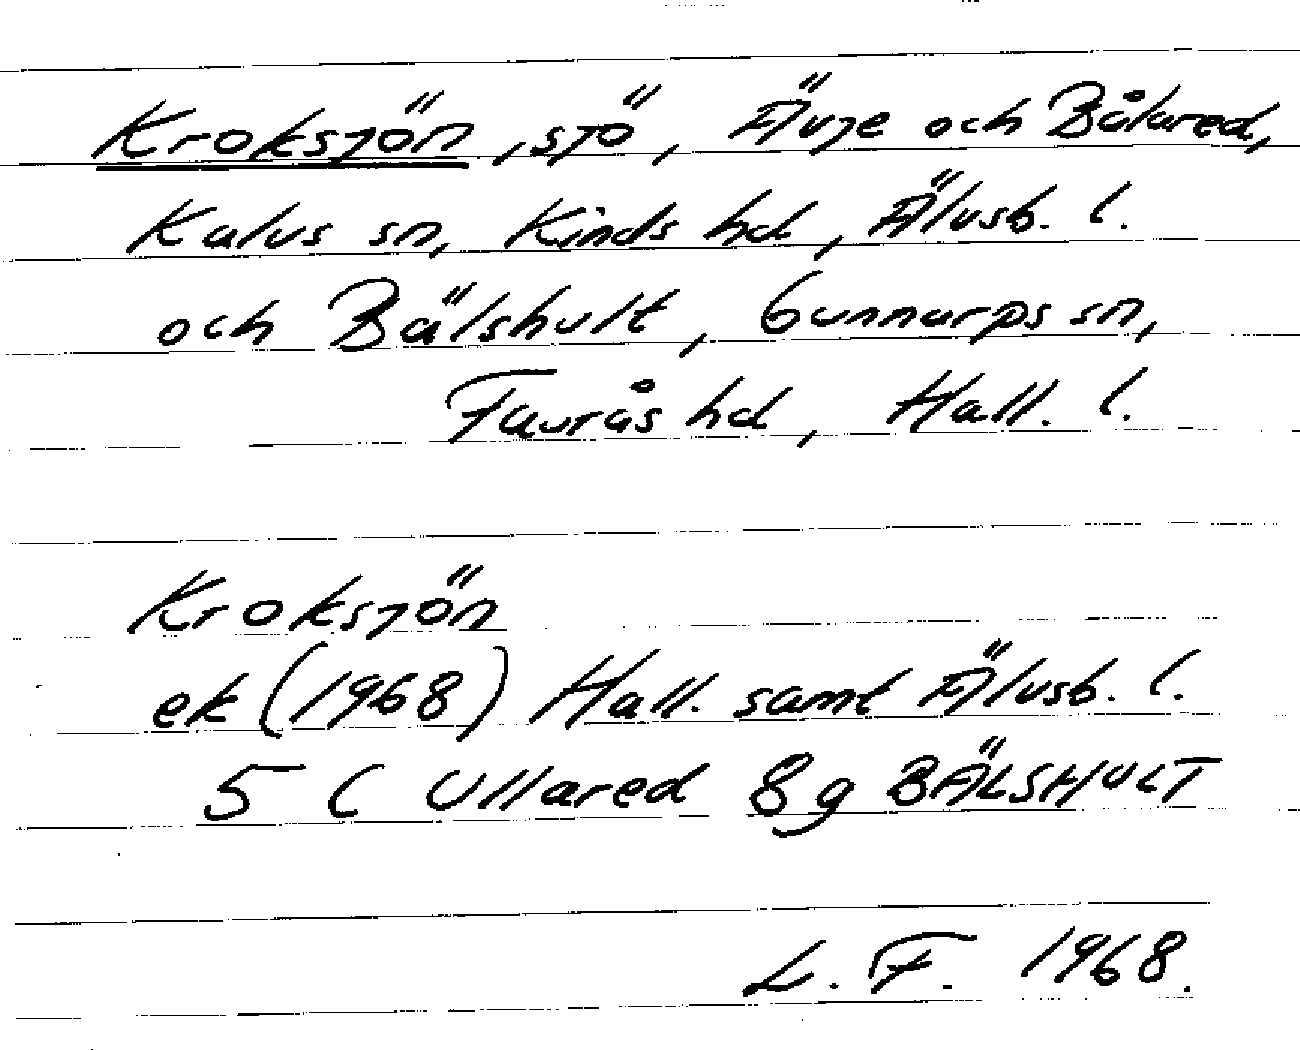 Kroksjön, sjö, Älvje och Bålared,
Kalvs sn, Kinds hd, Älvsb. l.
och Bälshult, Gunnarps sn,
Faurås hd, Hall. l.
Kroksjön
ek (1968) Hall. samt Älvsb. l.
5 C Ullared 8g BÄLSHULT
L. F. 1968.